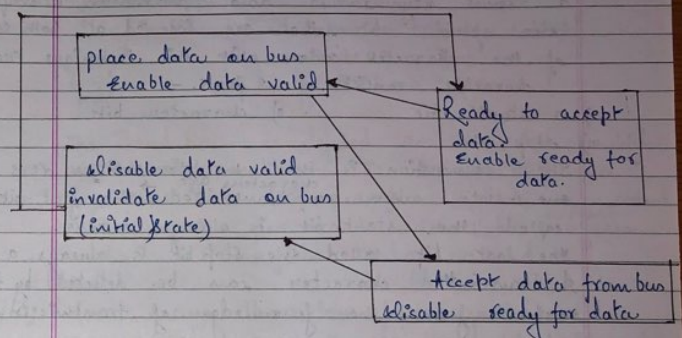 place data on bus
Enable data valid
Ready to accept
data.
Enable ready for
data.
disable data valid
invalidate data on bus
(initial state)
Accept data from bus
disable ready for data